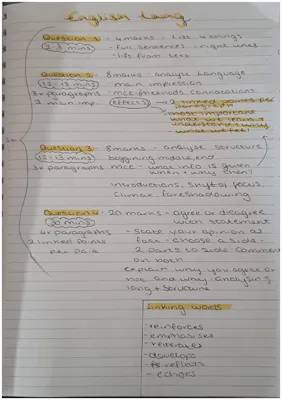 English Lang
Question 1 - 4 marks - list 4 things
2-3 mins - full sentences - right lines
- lifts from text
Question 2: 8 marks analyse language
12-13 mins main impression
3x paragraphs mcc - methods connotations
2 main imp. effects → 2 linked zones per
paragraph
most important
what we learn &
understand &
what we feel!
Question 3 8 marks - analyse structure
12-13 mins beggining middle end
3x paragraphs mcc - what info is given
when + why then!
introductions, shift of focus,
climax foreshadowing
Question 4: 20 marks - agree or disagree
30 mins with statement
4x paragraphs - state your opinion on
2 linked points - choose a side -
per para 2 parts to side comment
on both
explain why you agree or
not and why - analysing
lang + structure
linking words
- reinforces
- emphasises
- reiterates
- develops
- reflects
- echoes